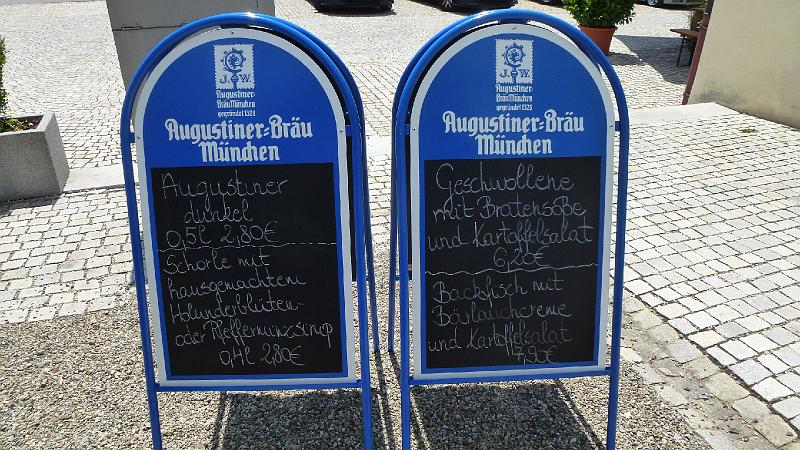 J. W.
Augustiner-
Bräu München
gegründet 1328
Augustiner-Bräu
München
Augustiner
dunkel
0,5l 2,80€
Schorle mit
hausgemachtem
Holunderblüten-
oder Pfefferminzsirup
0,4l 2,80€
J. W.
Augustiner-
Bräu München
gegründet 1328
Augustiner-Bräu
München
Geschwollene
mit Bratensoße
und Kartoffelsalat
6,20€
Backfisch mit
Bärlauchcreme
und Kartoffelsalat
7,90€